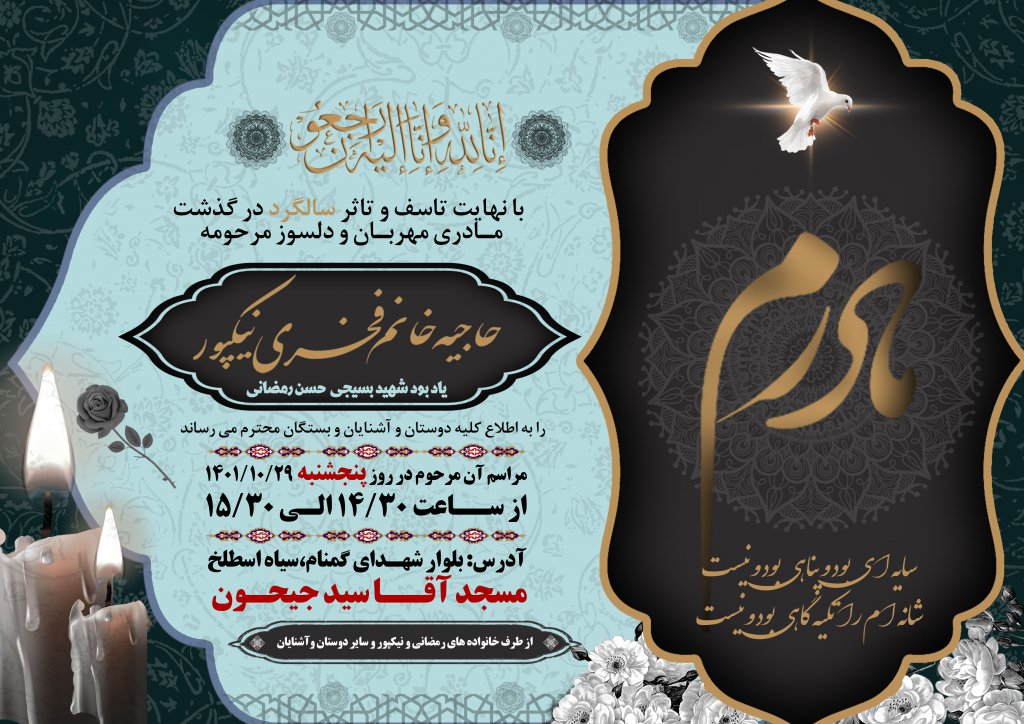 مادرم
سایه ای بود و پناهی بود و نیست
شانه ام را تکیه گاهی بود و نیست
إنا لله وإنا إلیه راجعون
با نهایت تاسف و تاثر سالگرد در گذشت
مادری مهربان و دلسوز مرحومه
حاجیه خانم فخری نیکپور
یادبود شهید بسیجی حسن رمضانی
را به اطلاع کلیه دوستان و آشنایان و بستگان محترم می رساند
مراسم آن مرحوم در روز پنجشنبه ۱۴۰۱/۱۰/۲۹
از ساعت ۱۴/۳۰ الی ۱۵/۳۰
آدرس: بلوار شهدای گمنام،سیاه اسطلخ
مسجد آقا سید جیحون
از طرف خانواده های رمضانی و نیکپور و سایر دوستان و آشنایان